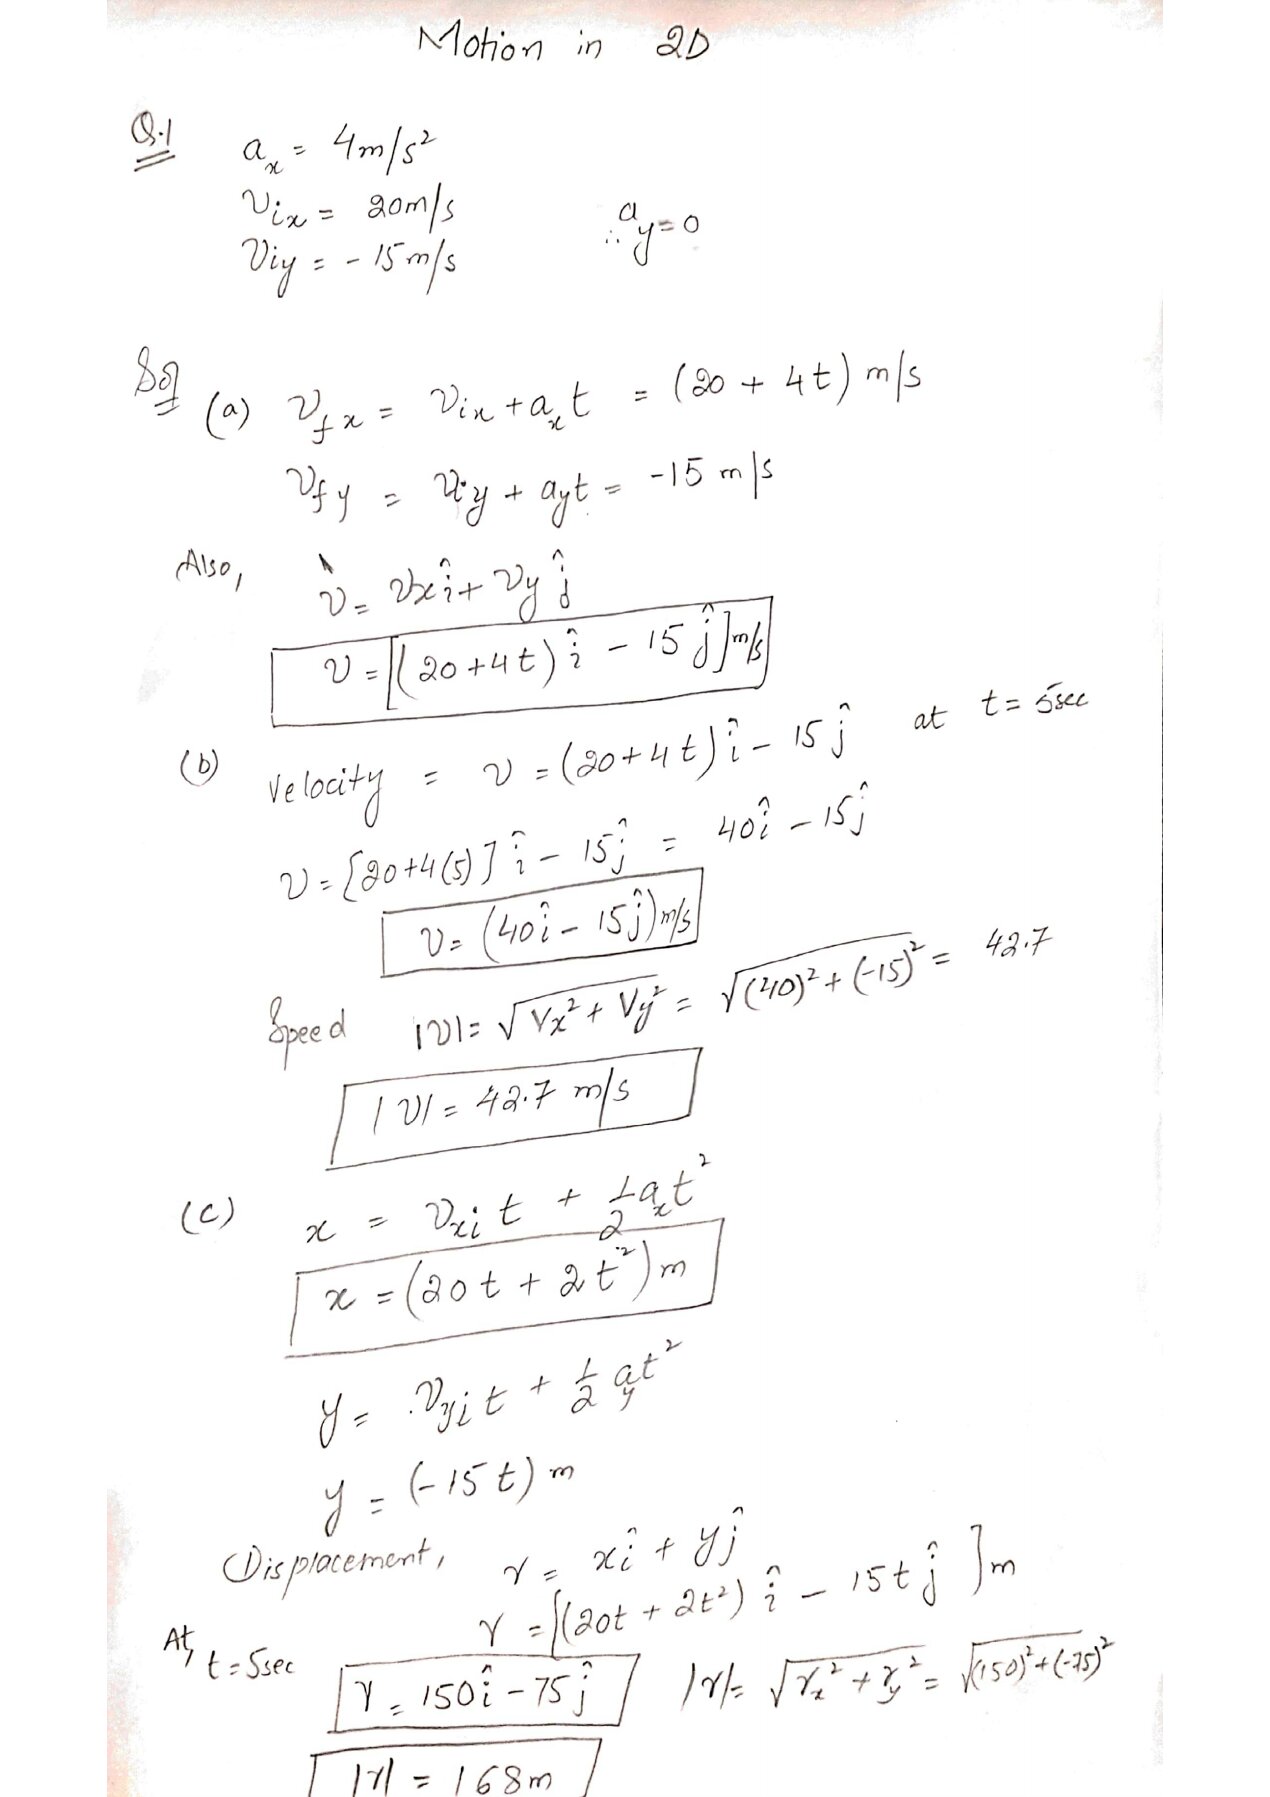 Motion in 2D
Q.1 aₓ = 4m/s²
v_ix = 20m/s ∴ a_y = 0
v_iy = -15 m/s
Sol (a) v_fx = v_ix + aₓt = (20 + 4t) m/s
v_fy = v_iy + a_yt = -15 m/s
Also, v = vx î + vy ĵ
v = [(20+4t) î - 15 ĵ] m/s
(b) Velocity = v = (20+4t) î - 15 ĵ at t = 5sec
v = [20+4(5)] î - 15 ĵ = 40î - 15ĵ
v = (40î - 15ĵ) m/s
Speed |v| = √Vx² + Vy² = √(40)² + (-15)² = 42.7
|v| = 42.7 m/s
(c) x = v_xi t + 1/2 aₓt²
x = (20t + 2t²) m
y = v_yi t + 1/2 a_yt²
y = (-15t) m
Displacement, r = xî + yĵ
r = [(20t + 2t²) î - 15t ĵ] m
At, t = 5sec r = 150î - 75ĵ |r| = √rₓ² + r_y² = √(150)² + (-75)²
|r| = 168m